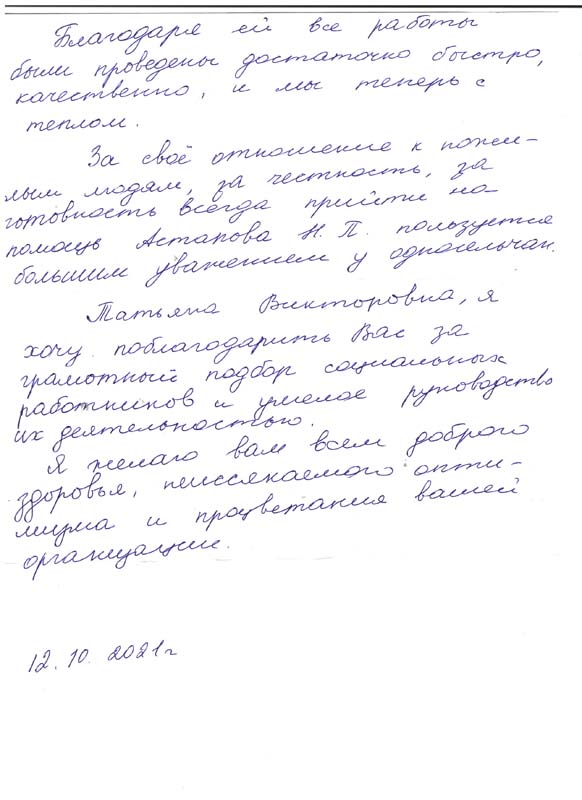 Благодаря ей все работы
были проведены достаточно быстро,
качественно, и мы теперь с
теплом.
За своё отношение к пожи-
лым людям, за честность, за
готовность всегда прийти на
помощь Астапова Н. П. пользуется
большим уважением у односельчан.
Татьяна Викторовна, я
хочу поблагодарить Вас за
грамотный подбор социальных
работников и умелое руководство
их деятельностью.
Я желаю вам всем доброго
здоровья, неиссякаемого опти-
мизма и процветания вашей
организации.
12.10.2021г